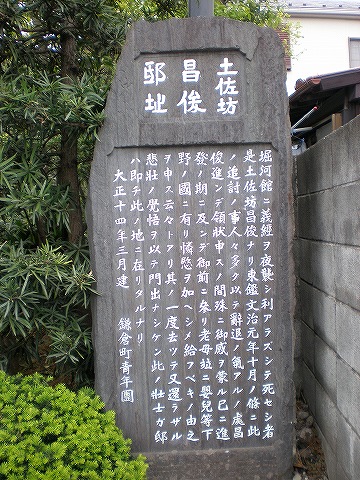 土佐坊
昌俊
邸址
堀河館ニ義經ヲ夜襲シ利アラズシテ死セシ者
是土佐坊昌俊ナリ東鑑文治元年十月ノ條ニ此
ノ追討ノ事人々多ク以テ辭退ノ氣アルノ處昌
俊進ンデ領狀申スノ間殊ニ御感ヲ蒙ル已ニ進
發ノ期ニ及ンデ御前ニ參リ老母竝ニ嬰兒等下
野ノ國ニ有リ憐愍ヲ加ヘシメ給フベキノ由之
ヲ申ス云々トアリ其ノ一度去ツテ又還ラザル
悲壯ノ覺悟ヲ以テ門出ナシケン此ノ壯士ガ邸
ハ即チ此ノ地ニ在リタルナリ
大正十四年三月建 鎌倉町青年團